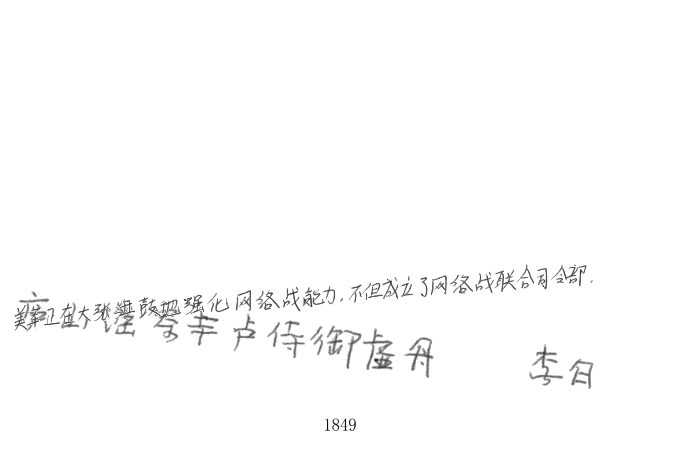 美军正在大张旗鼓地强化网络战能力,不但成立了网络战联合司令部.
卢侍御虚舟 李白
1849